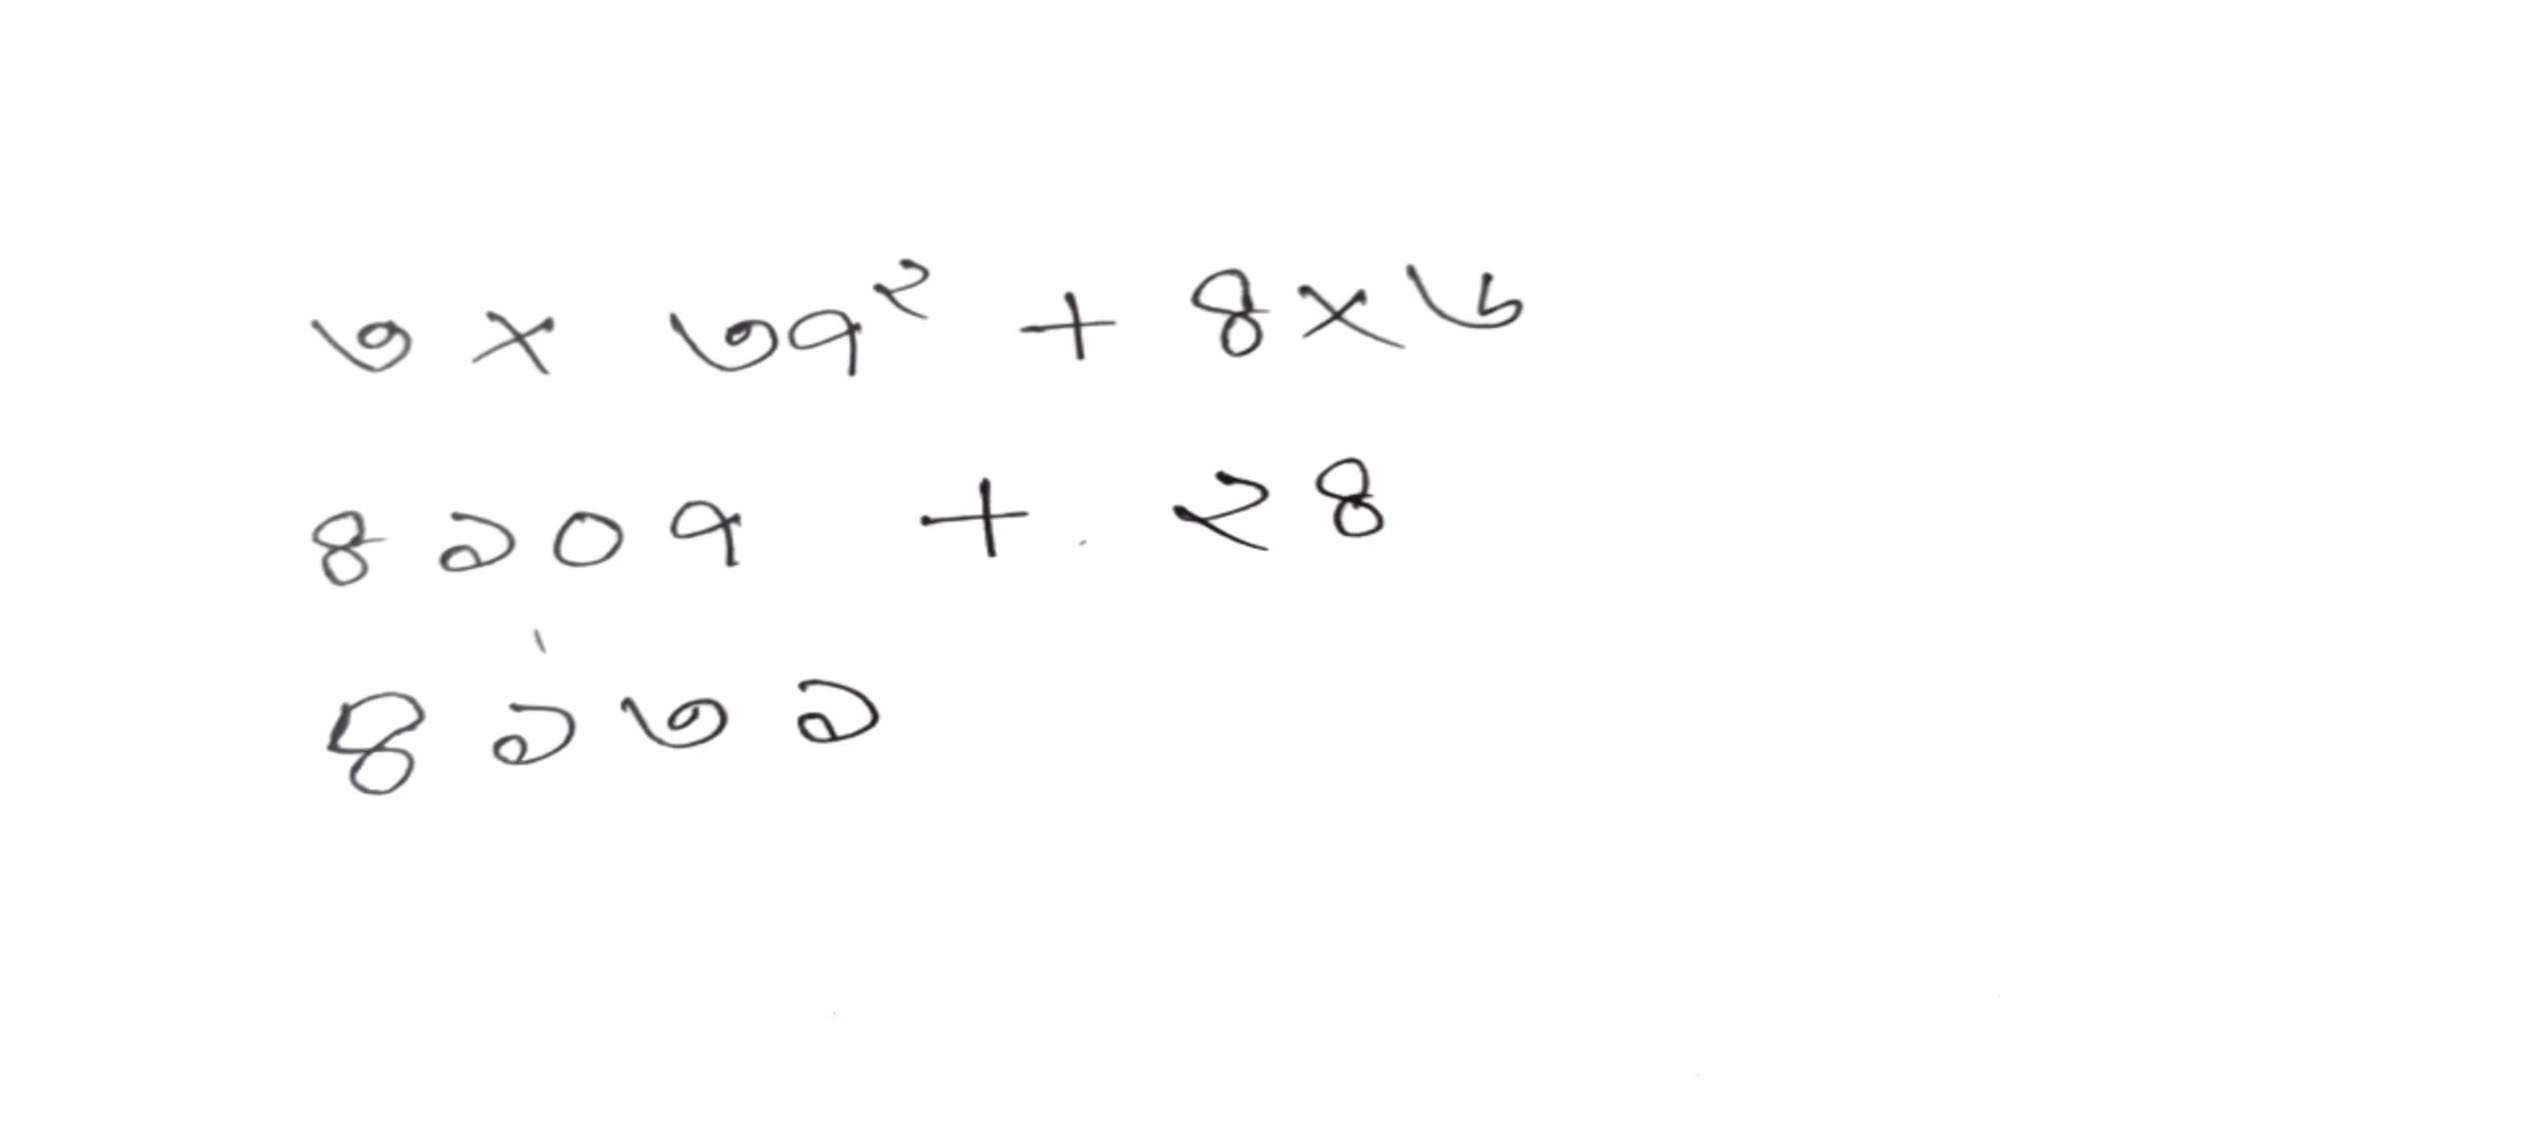 ৩ × ৩৭² + ৪×৬
৪১০৭ + ২৪
৪১৩১